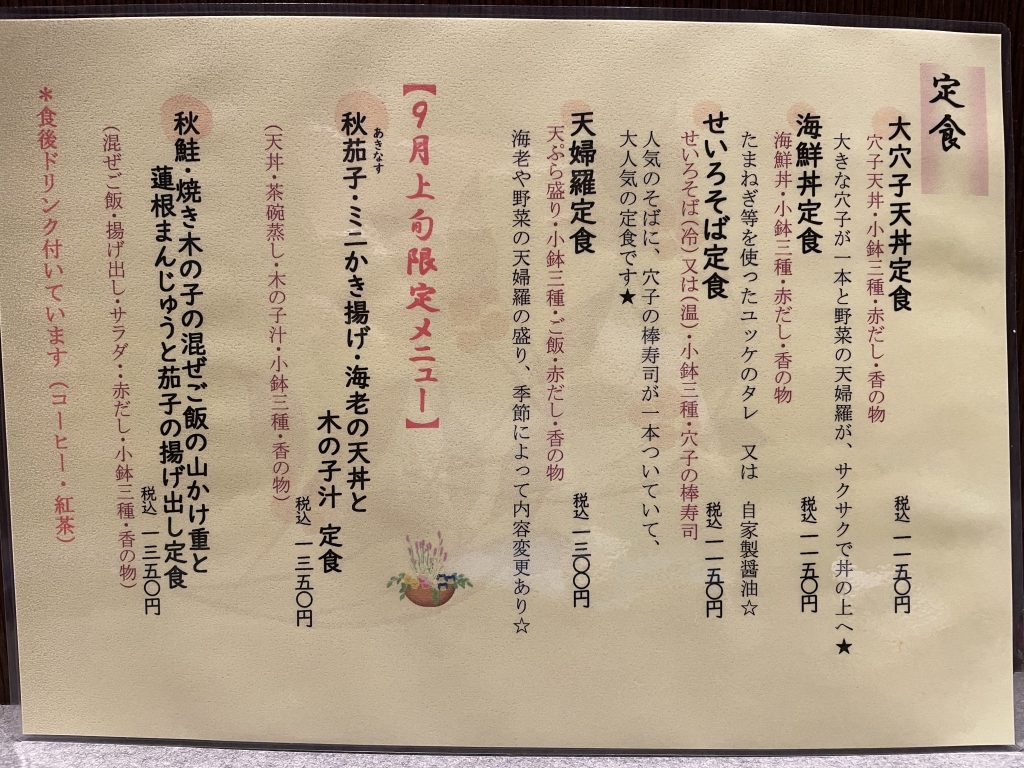 定食
大穴子天丼定食 税込 一一五〇円
穴子天丼・小鉢三種・赤だし・香の物
大きな穴子が一本と野菜の天婦羅が、サクサクで丼の上へ★
海鮮丼定食 税込 一一五〇円
海鮮丼・小鉢三種・赤だし・香の物
たまねぎ等を使ったユッケのタレ 又は 自家製醤油☆
せいろそば定食 税込 一一五〇円
せいろそば(冷)又は(温)・小鉢三種・穴子の棒寿司
人気のそばに、穴子の棒寿司が一本ついていて、
大人気の定食です★
天婦羅定食 税込 一三〇〇円
天ぷら盛り・小鉢三種・ご飯・赤だし・香の物
海老や野菜の天婦羅の盛り、季節によって内容変更あり☆
【9月上旬限定メニュー】
あきなす
秋茄子・ミニかき揚げ・海老の天丼と
木の子汁 定食
税込 一三五〇円
(天丼・茶碗蒸し・木の子汁・小鉢三種・香の物)
秋鮭・焼き木の子の混ぜご飯の山かけ重と
蓮根まんじゅうと茄子の揚げ出し定食
税込 一三五〇円
(混ぜご飯・揚げ出し・サラダ・・赤だし・小鉢三種・香の物)
*食後ドリンク付いています(コーヒー・紅茶)